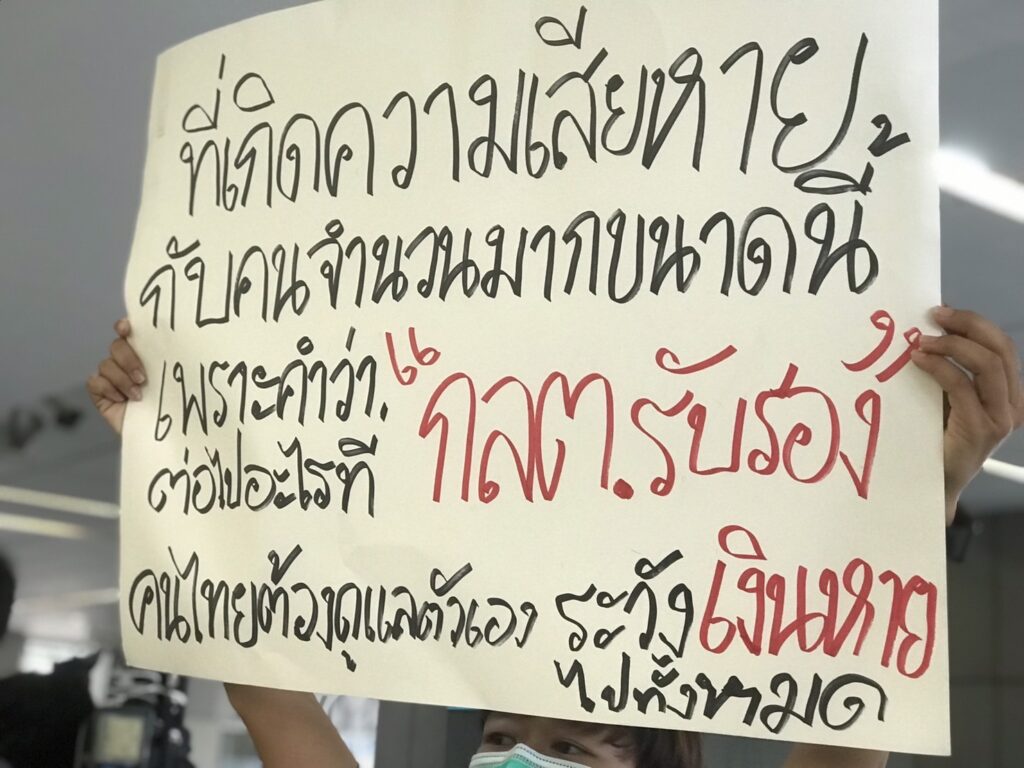 ที่เกิดความเสียหาย
กับคนจำนวนมากขนาดนี้
เพราะคำว่า. "กลต.รับรอง"
ต่อไปอะไรที่
คนไทยต้องดูแลตัวเอง ระวังเงินหาย
ไปทั้งหามด